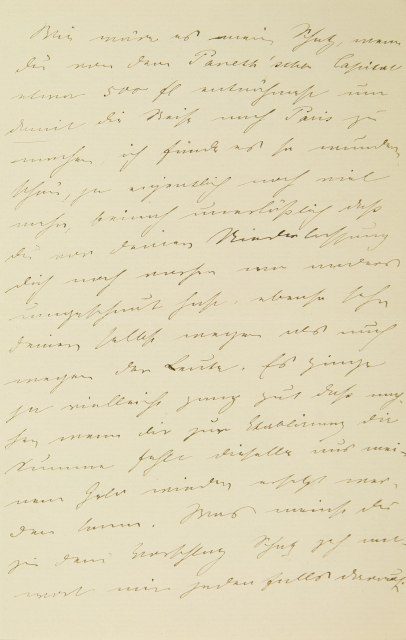 Wie wäre es mein Schatz, wenn
du von dem Paneth'schen Capital
etwa 500 fl entnähmest um
damit die Reise nach Paris zu
machen, ich fände es so wunder
schön, ja eigentlich noch viel
mehr, beinah unerläßlich daß
du vor deiner Niederlassung
dich noch vorher wo anders
umgeschaut hast, ebenso sehr
deiner selbst wegen als auch
wegen der Leute. Es ginge
ja vielleicht ganz gut daß wir
wenn dir zur Etablirung die
Summe fehlt dieselbe aus mei-
nem Geld wieder ersetzt wer-
den kann. Was meinst du
zu dem Vorschlag Schatz
wort mir jedenfalls darauf